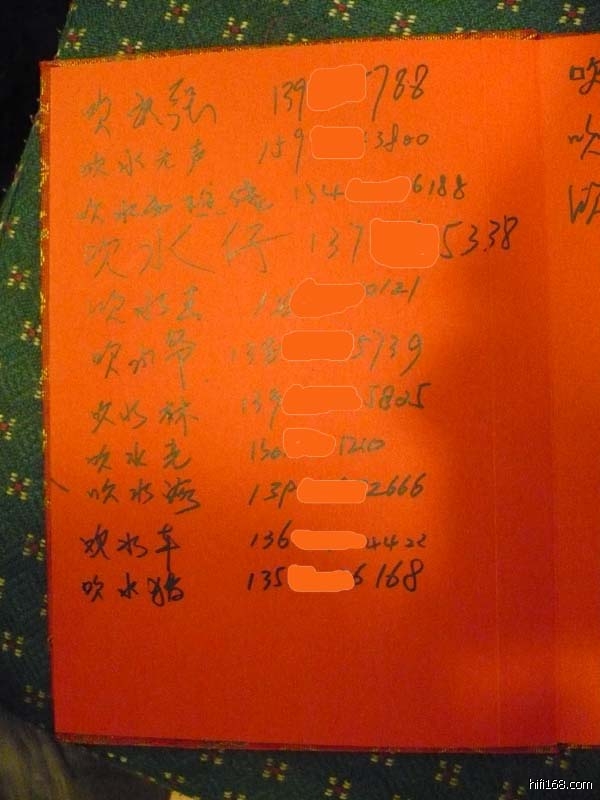 吹水强 139 5788
吹水无声 159 3800
吹水 134 6188
吹水仔 137 5338
吹水 13 0121
吹水 13 5739
吹水林 139 5805
吹水亮 130 1210
吹水 139 2666
吹水车 136 4422
吹水猪 135 6168
吹
吹
吹
hifi168.com